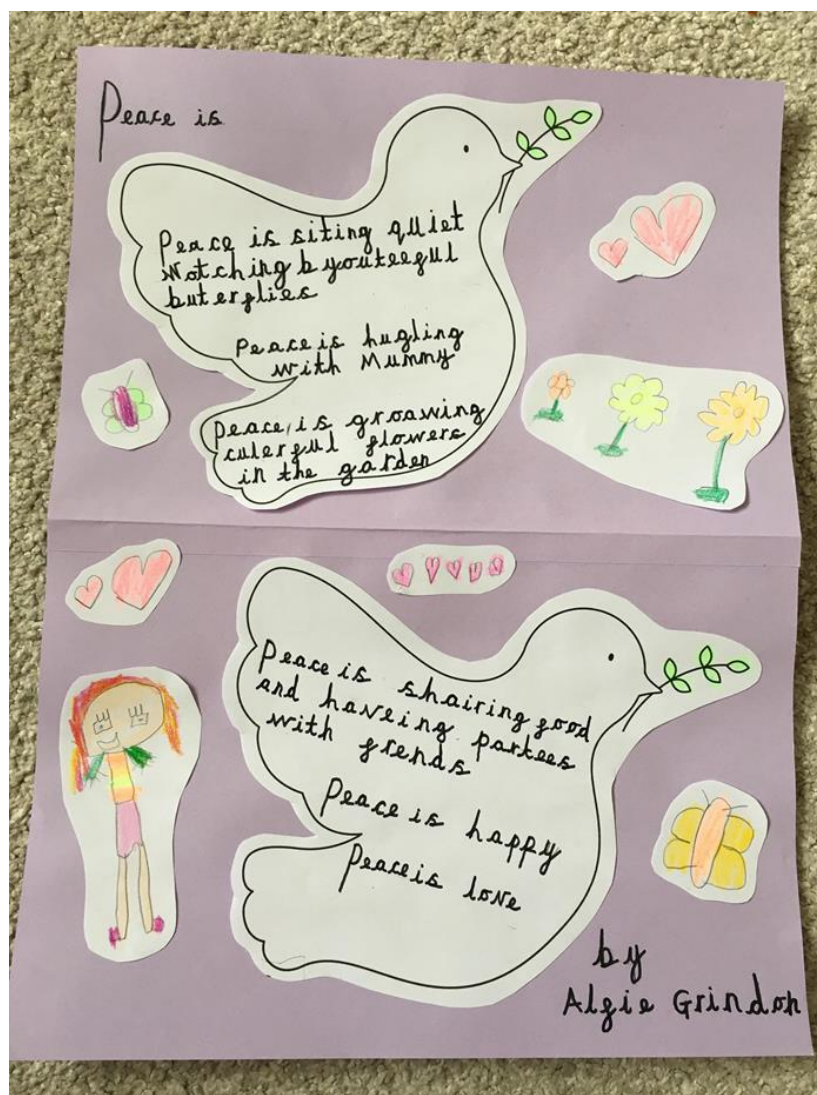 Peace is
Peace is siting quiet
watching byouteeful
buterflies
Peace is hugling
with Mummy
Peace is groawing
culerful flowers
in the garden
Peace is shairing food
and haveing partees
with frends
Peace is happy
Peace is love
by
Algie Grindon